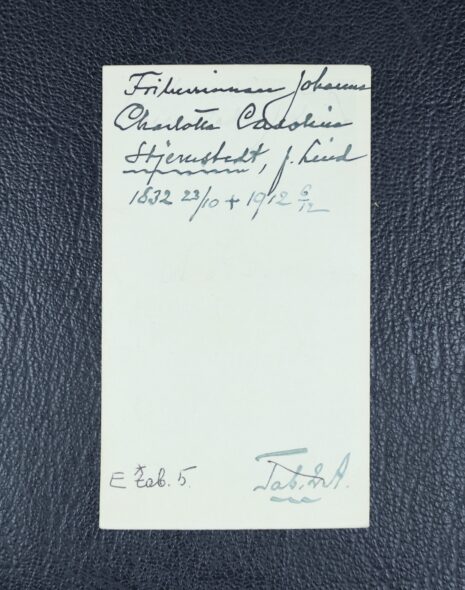 Friherrinnan Johanna
Charlotta Carolina
Stjernstedt, f. Lind
1832 23/10 + 1912 6/12
E Tab. 5.
Tab. 2 A.